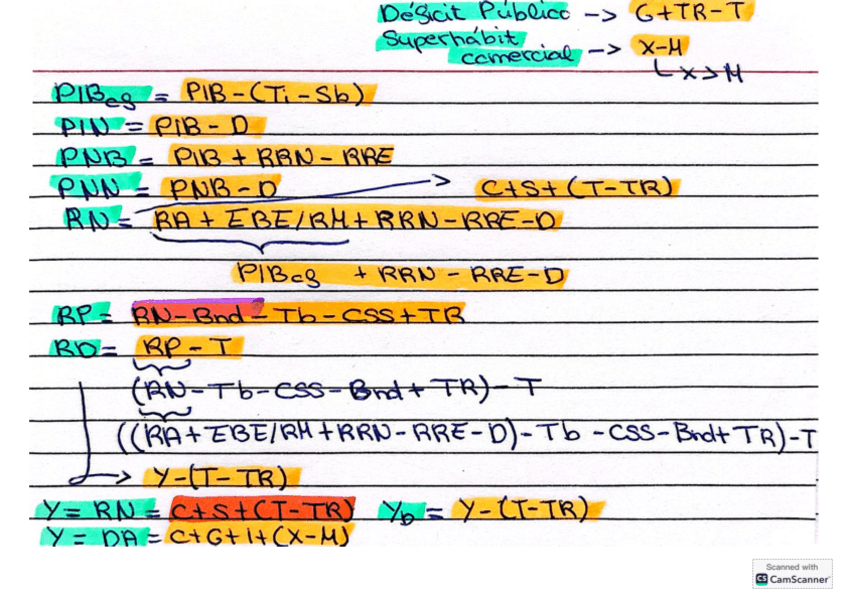 Déficit Público -> G+TR-T
Superhábit comercial -> X-M
↳ X>M
PIBcg = PIB-(Ti-Sb)
PIN = PIB-D
PNB = PIB + RRN - RRE
PNN = PNB-D
-> C+S+(T-TR)
RN = RA + EBE/RM + RRN-RRE-D
PIBcg + RRN - RRE-D
RP = RN-Bnd-Tb-CSS+TR
RD = RP-T
(RN-Tb-CSS-Bnd+TR)-T
((RA+EBE/RM+RRN-RRE-D)-Tb-CSS-Bnd+TR)-T
-> Y-(T-TR)
Y = RN = C+S+(T-TR) YD = Y-(T-TR)
Y = DA = C+G+I+(X-M)
Scanned with
CS CamScanner